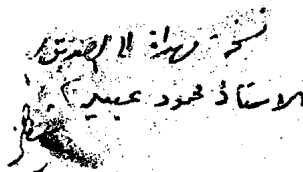 نسخة مهداة الى الصديق
الاستاذ محمود عبيد